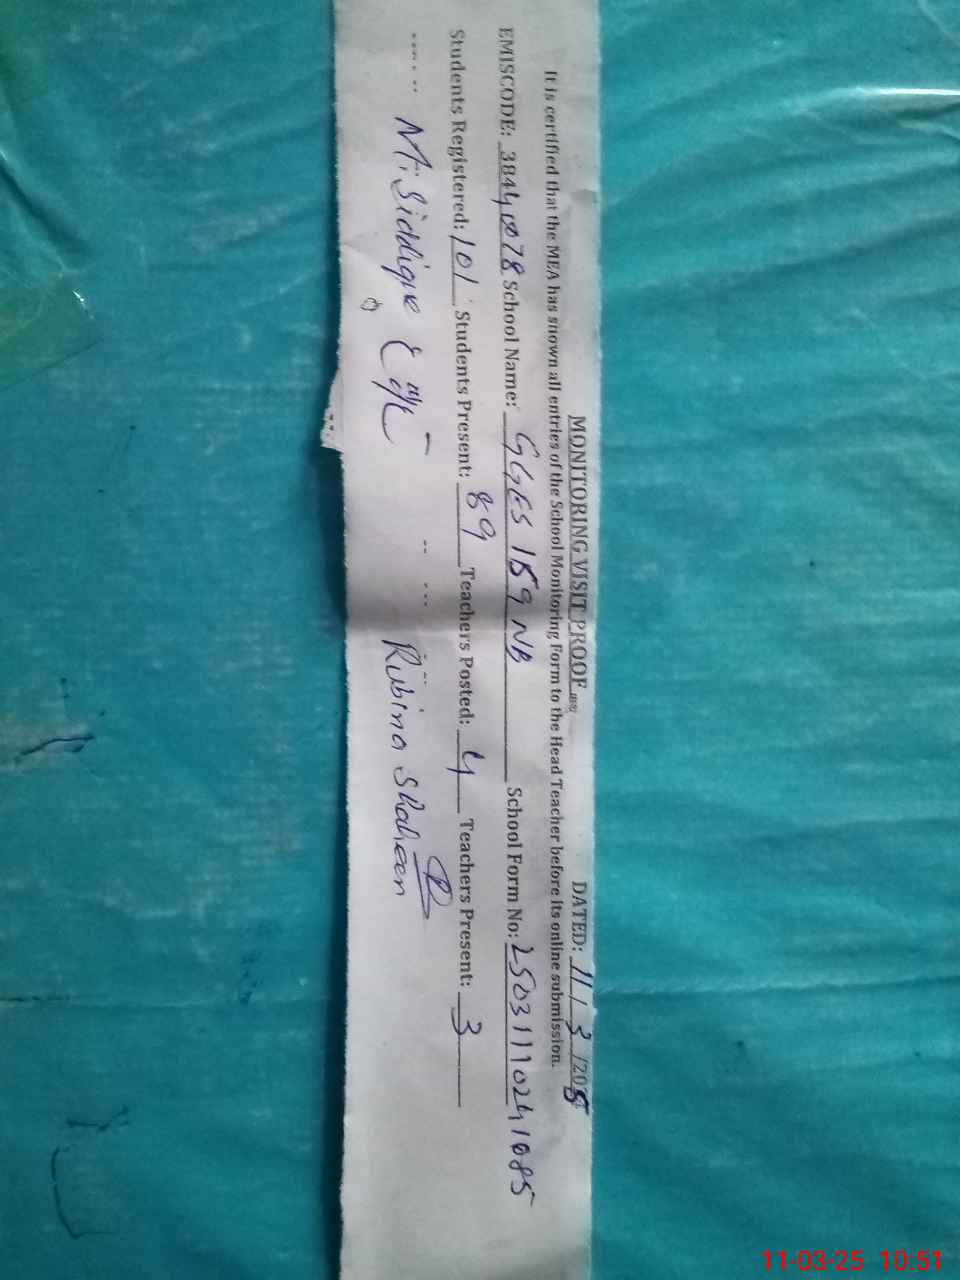 MONITORING VISIT PROOF DATED: 11/3/2025
It is certified that the MEA has shown all entries of the School Monitoring Form to the Head Teacher before its online submission.
EMISCODE: 38440078 School Name: GGES 159 NB School Form No: 25031110241085
Students Registered: 101 Students Present: 89 Teachers Posted: 4 Teachers Present: 3
M. Siddique Rubina Shaheen
11-03-25 10:51